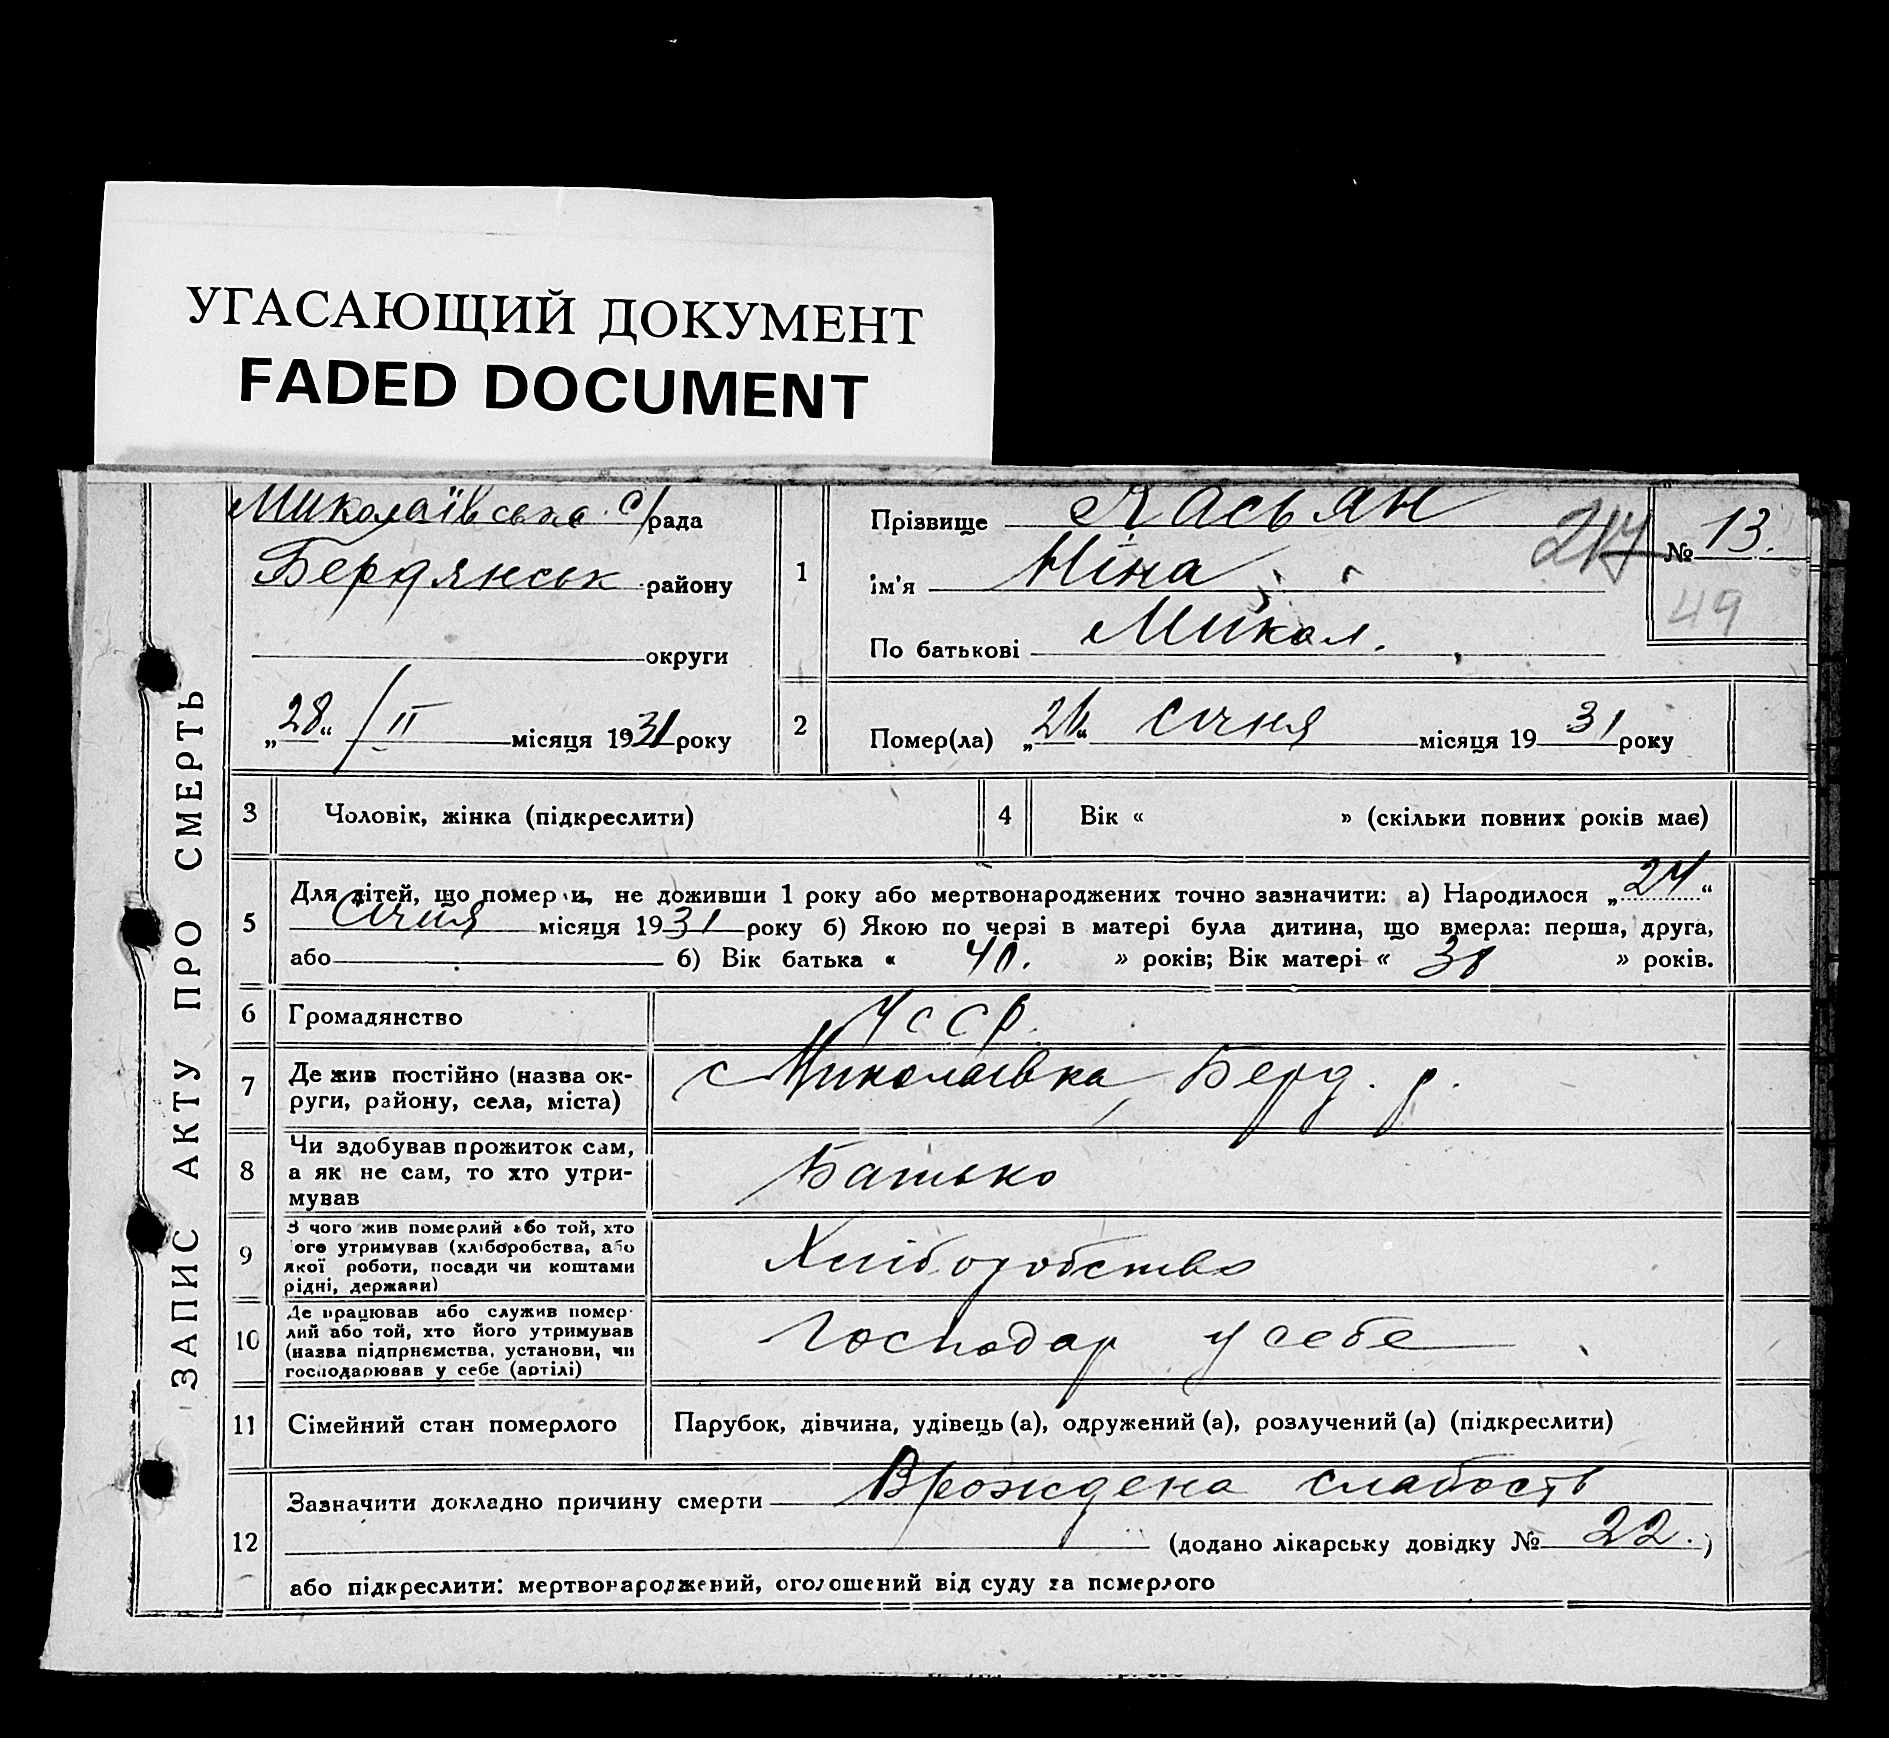 УГАСАЮЩИЙ ДОКУМЕНТ
FADED DOCUMENT
ЗАПИС АКТУ ПРО СМЕРТЬ
Миколаївська с/рада
Бердянськ району
округи
„28“ / II місяця 1931 року
1
Прізвище Касьян
ім'я Ніна
По батькові Микол.
217
№ 13.
49
2
Помер(ла) січня місяця 1931 року
3 Чоловік, жінка (підкреслити)
4 Вік « » (скільки повних років має)
5 Для дітей, що померли, не доживши 1 року або мертвонароджених точно зазначити: а) Народилося „24“
січня місяця 1931 року б) Якою по черзі в матері була дитина, що вмерла: перша, друга,
або б) Вік батька « 40. » років; Вік матері « 38 » років.
6 Громадянство УССР.
7 Де жив постійно (назва ок-
руги, району, села, міста)
с Миколаївка, Берд. р.
8 Чи здобував прожиток сам,
а як не сам, то хто утри-
мував
Батько
9 З чого жив померлий або той, хто
ого утримував (хліборобства, або
якої роботи, посади чи коштами
рідні, держави)
Хліборобство
10 Де працював або служив помер-
лий або той, хто його утримував
(назва підприємства, установи, чи
господарював у себе (артілі)
Господар у себе
11 Сімейний стан померлого Парубок, дівчина, удівець (а), одружений (а), розлучений (а) (підкреслити)
12 Зазначити докладно причину смерти Врождена слабость
(додано лікарську довідку № 22.)
або підкреслити: мертвонароджений, оголошений від суду за померлого